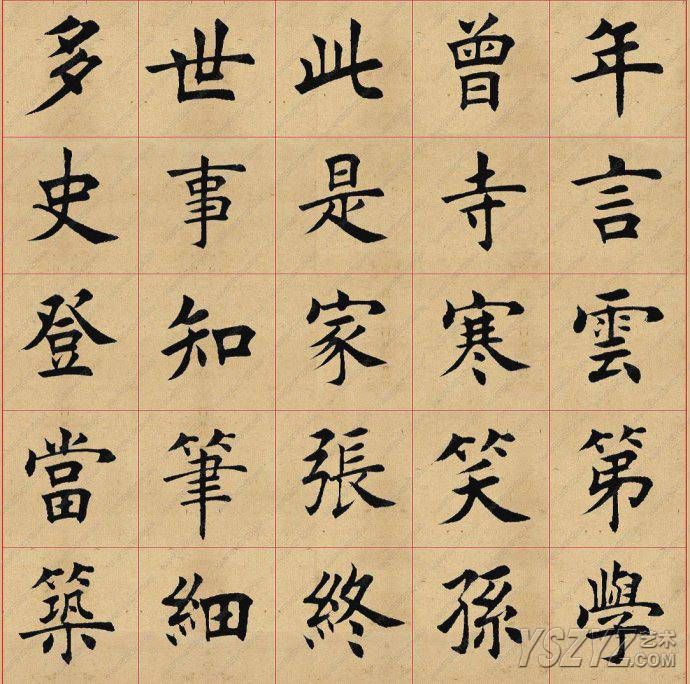 多世此曾年
史事是寺言
登知家寒雲
當筆張笑第
築細終孫學
YSZYZ艺术
.COM